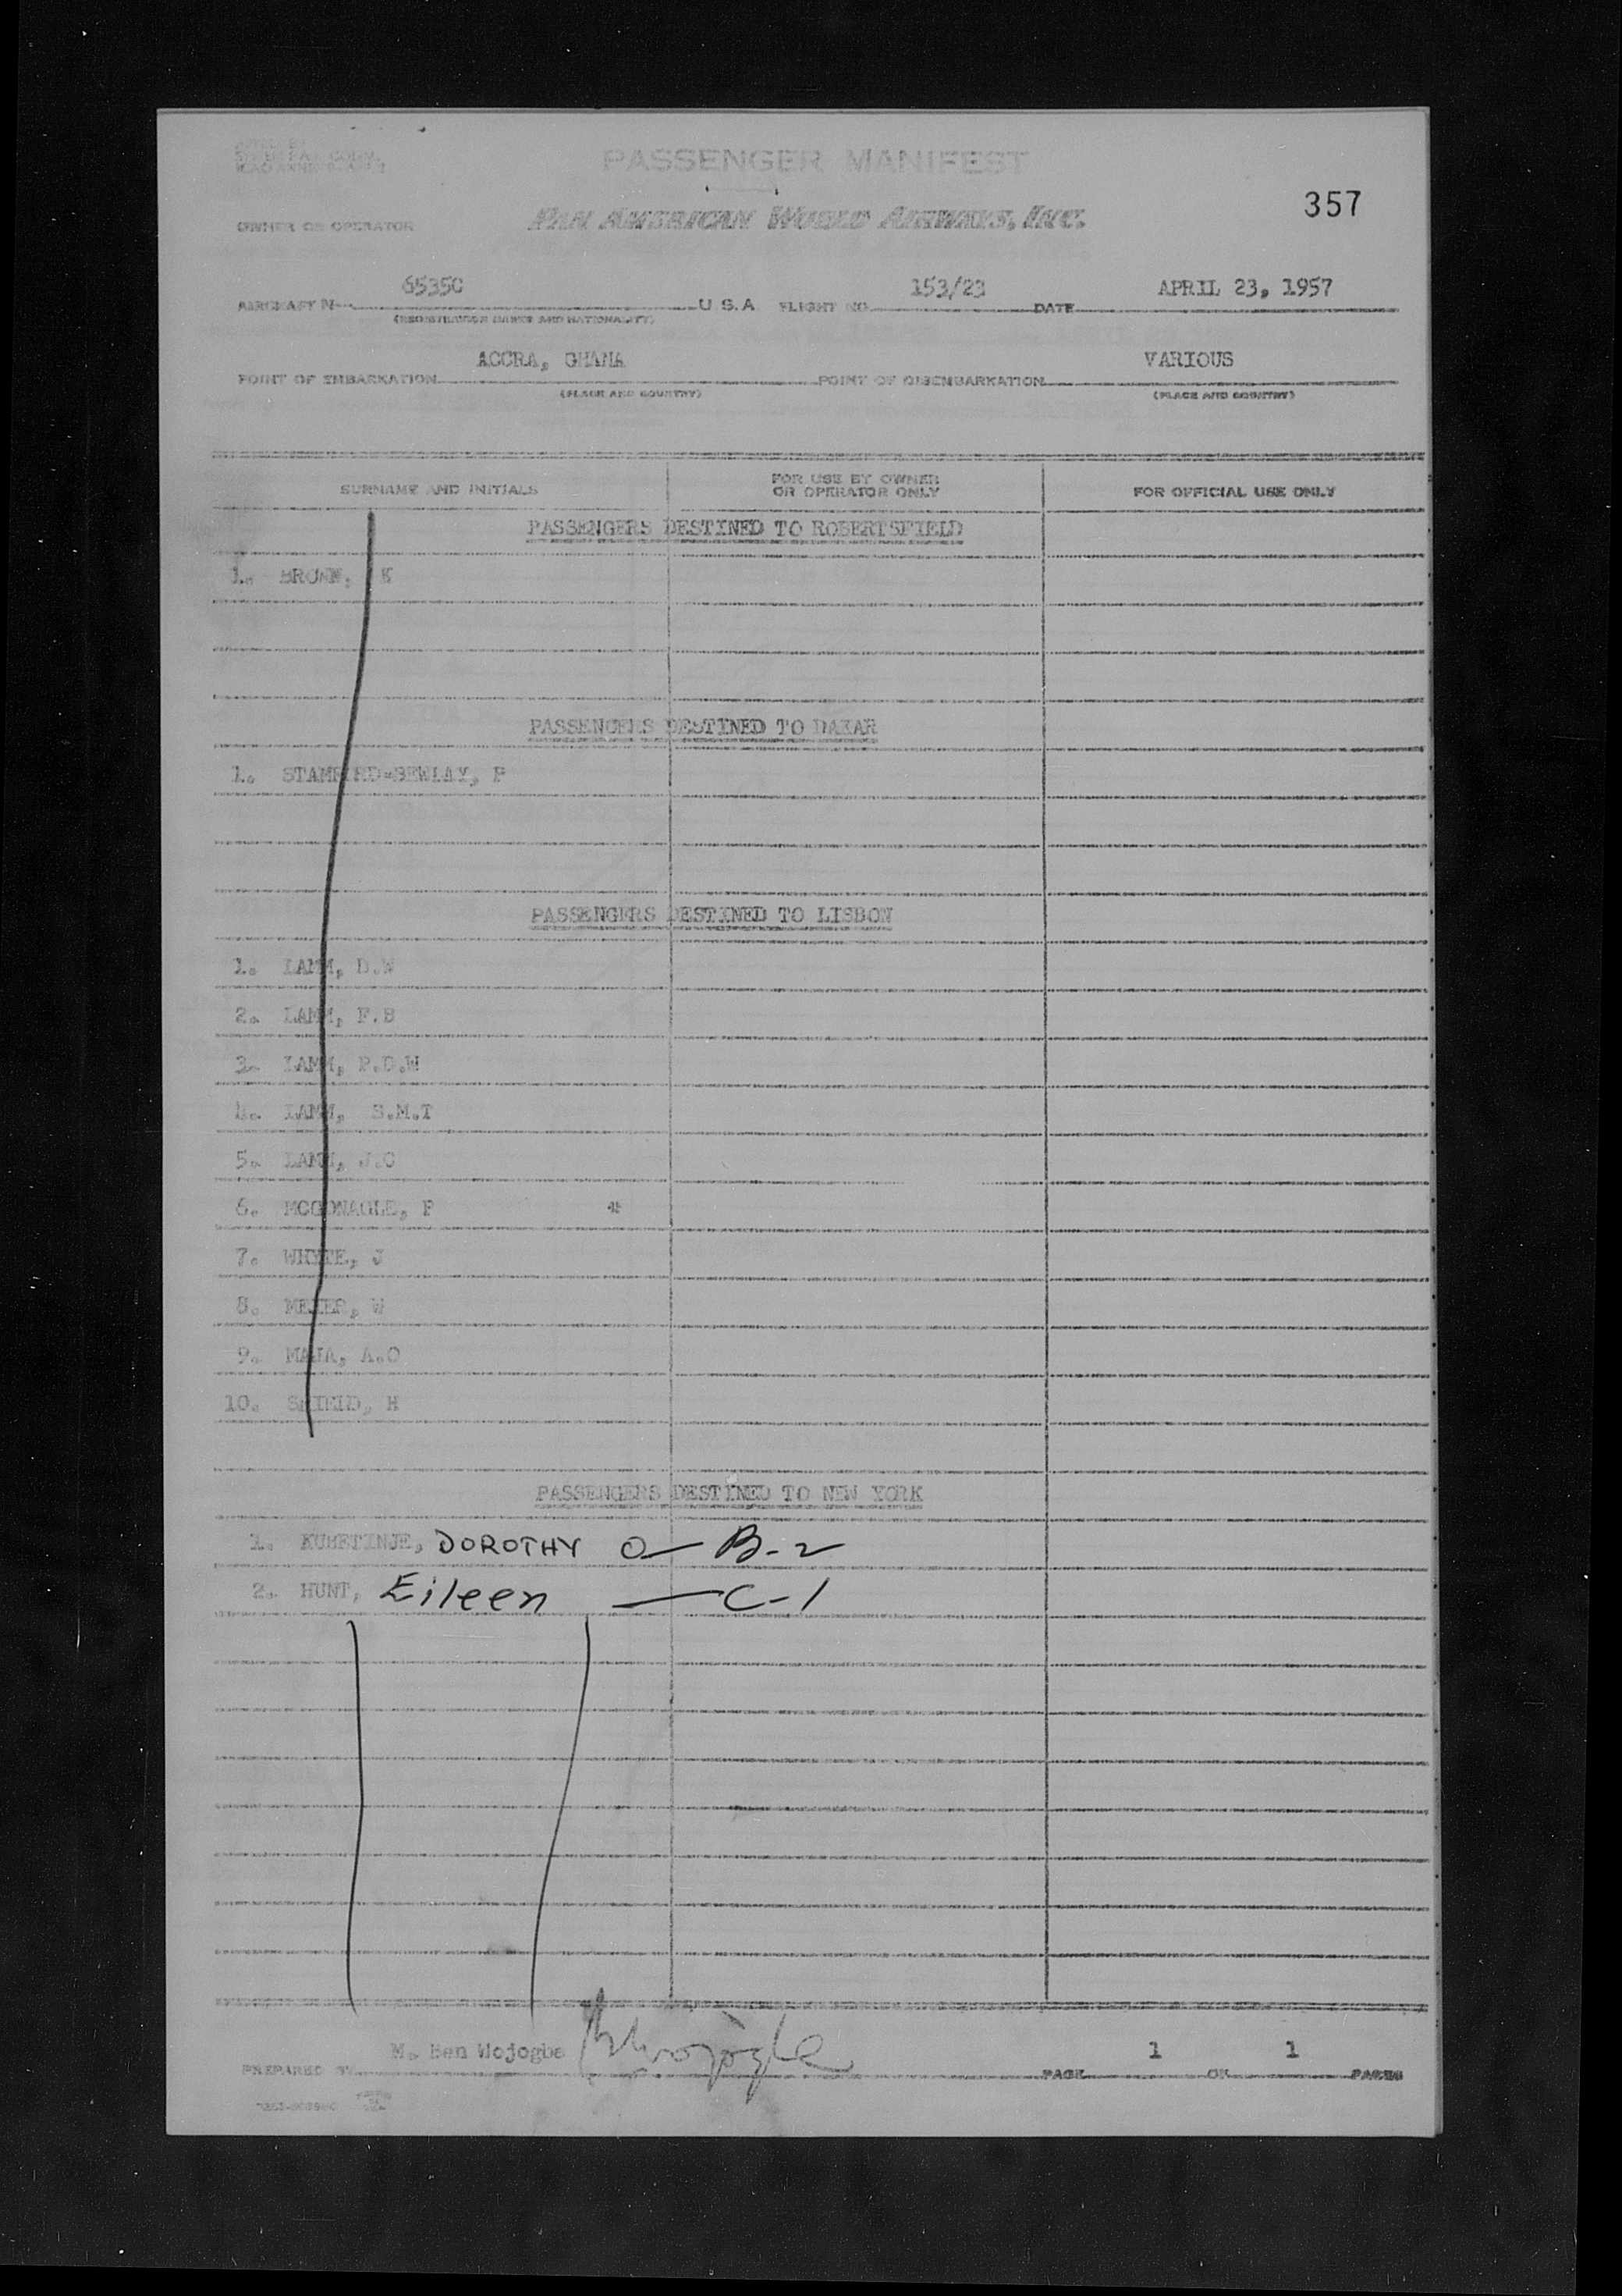 PASSENGER MANIFEST
357
OWNER OR OPERATOR PAN AMERICAN WORLD AIRWAYS, INC.
AIRCRAFT N 6535C U.S.A FLIGHT NO. 153/23 DATE APRIL 23, 1957
(REGISTRATION MARKS AND NATIONALITY)
POINT OF EMBARKATION ACCRA, GHANA POINT OF DISEMBARKATION VARIOUS
(PLACE AND COUNTRY) (PLACE AND COUNTRY)
SURNAME AND INITIALS FOR USE BY OWNER OR OPERATOR ONLY FOR OFFICIAL USE ONLY
PASSENGERS DESTINED TO ROBERTSFIELD
1. BROWN, K
PASSENGERS DESTINED TO DAKAR
1. STAMFORD-BEWLAY, P
PASSENGERS DESTINED TO LISBON
1. LAMM, D.W
2. LAMM, F.B
3. LAMM, P.D.W
4. LAMM, S.M.T
5. LAMM, J.C
6. MCGONAGLE, P
7. WHYTE, J
8. MEIER, W
9. MAJA, A.O
10. SHIELD, H
PASSENGERS DESTINED TO NEW YORK
1. DOROTHY O — B-2
2. HUNT, Eileen — C-1
PREPARED BY M. Ben Wojogbe PAGE 1 OF 1 PAGES